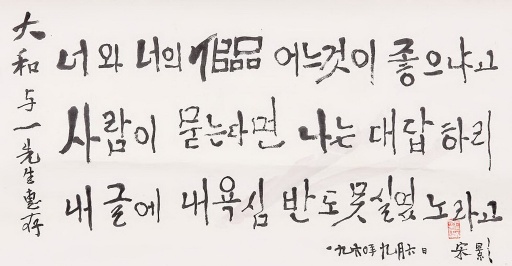 大和 与一先生惠存
너와 너의 個品 어느것이 좋으냐고
사람이 묻는다면 나는 대답하리
내 글에 내 욕심 반도 못실었노라고
一九六0年 九月六日 宋影